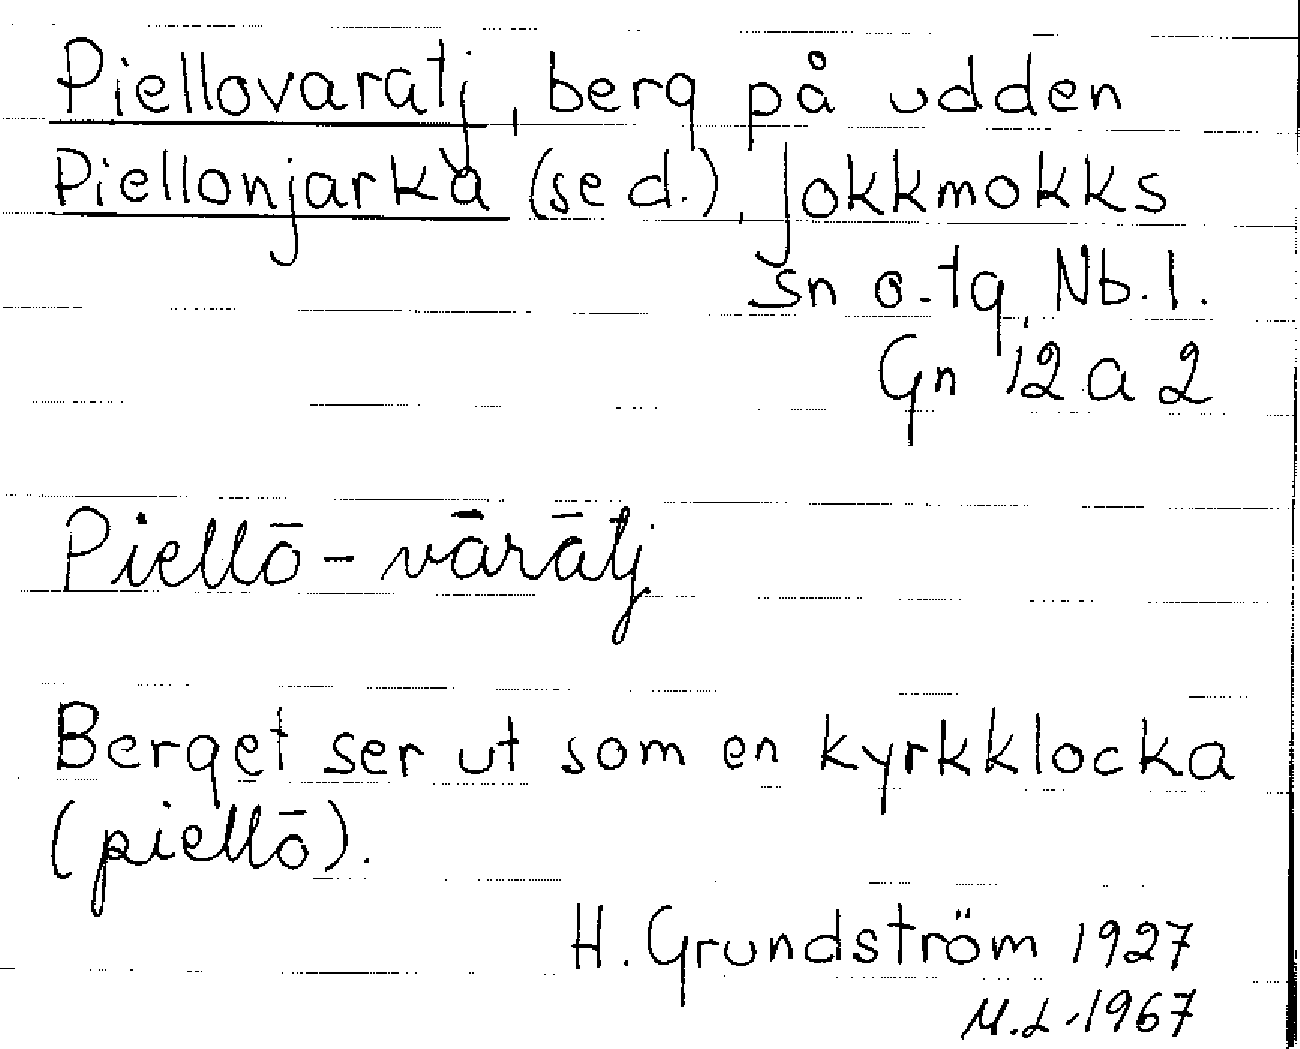 Piellovaratj, berg på udden
Piellonjarka (se d.), Jokkmokks
sn o. tg, Nb. l.
Gn 12 a 2
Piellō-vārātj
Berget ser ut som en kyrkklocka
(piellō).
H. Grundström 1927
M.L. 1967